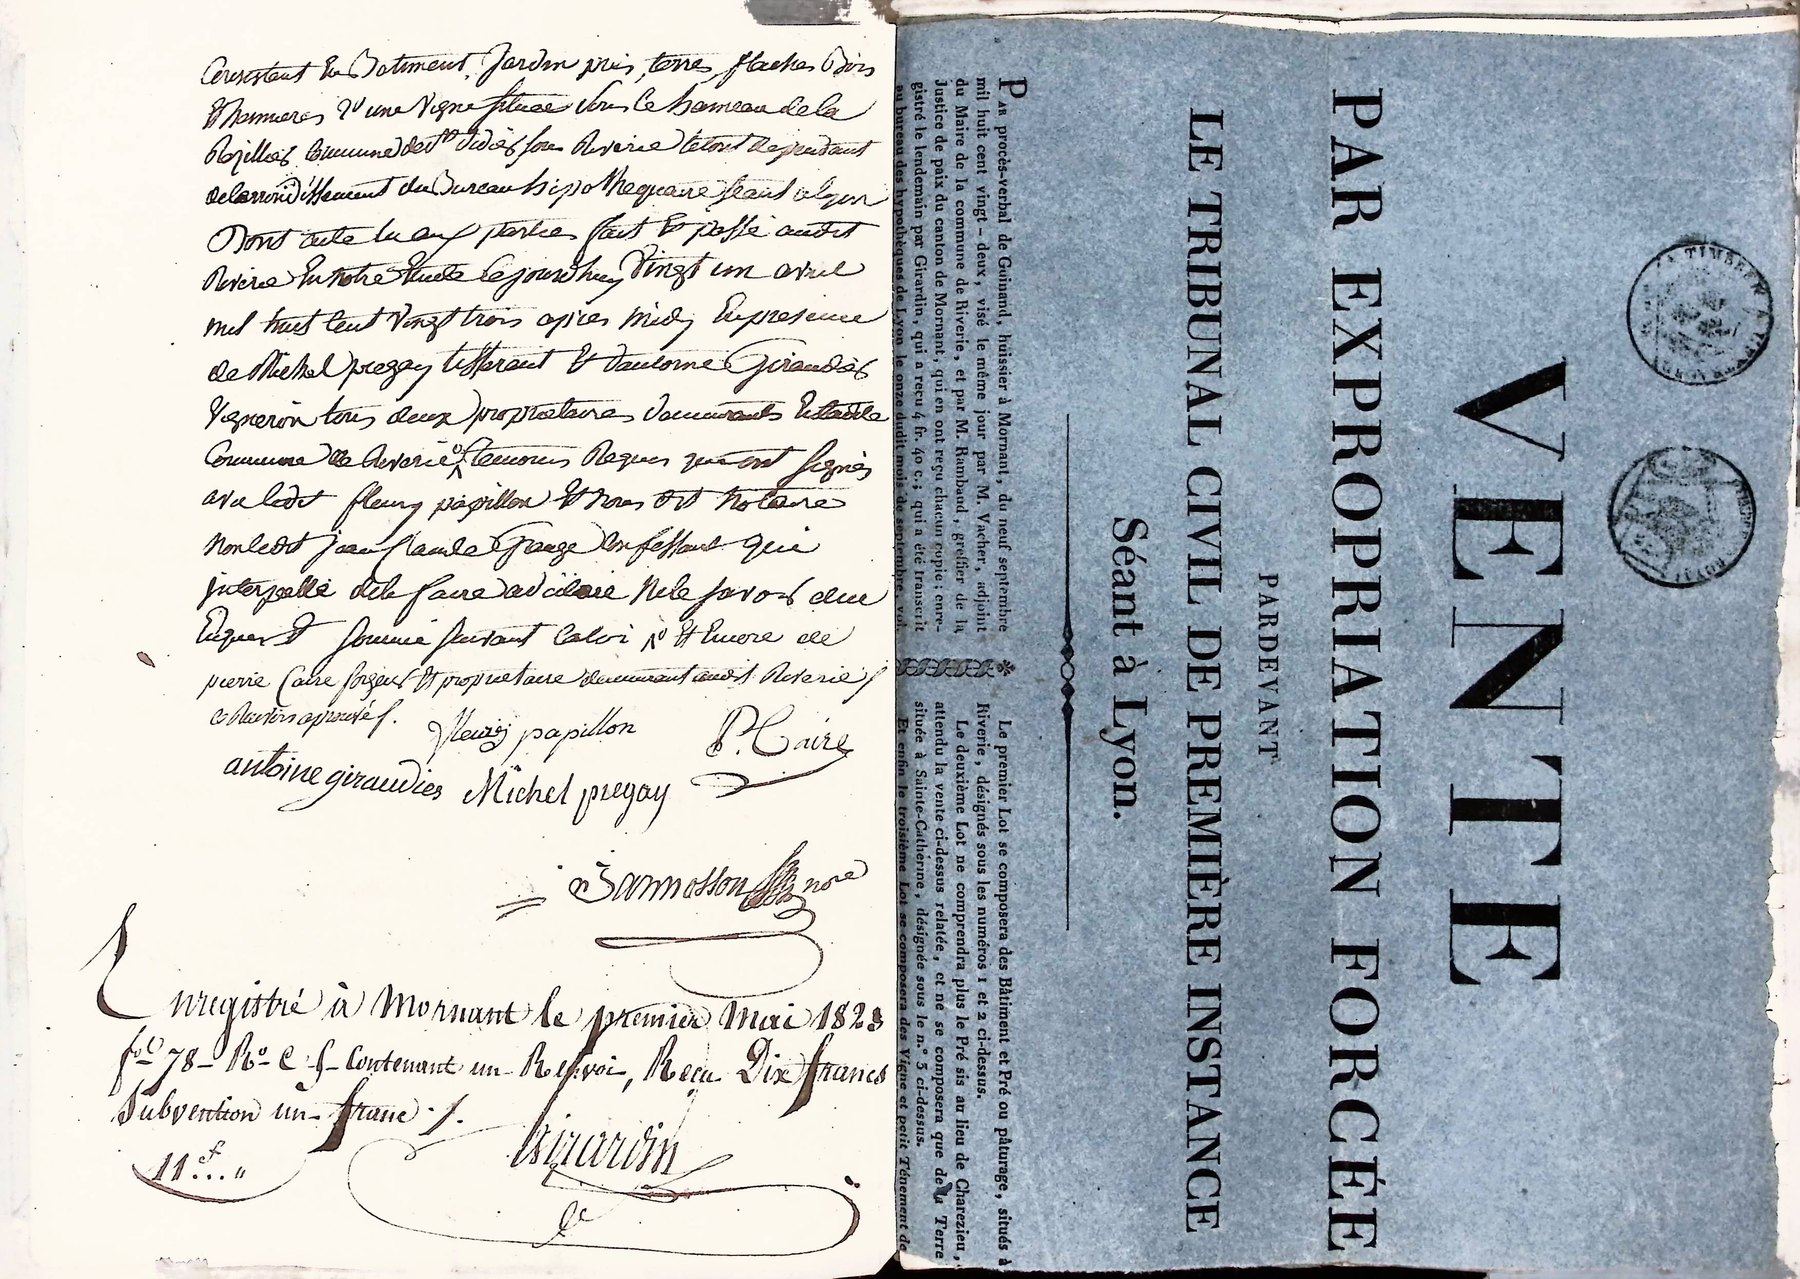 Consistant En Batiment, Jardin prés, terres, flaches Bois
Et hermieres & une vigne située sous le hameau de la
commune de St Didier sous Riverie le tout dependant
de larrondissement du Bureau hippothequaire seant a lyon
Dont acte lu aux parties fait Et passé audit
Riverie En notre Etude le jourdhuy Vingt un avril
mil huit Cent Vingt trois apres midy En presence
de Michel pregay tisserant Et dantoine Giraudier
Vigneron tous deux proprietaires demeurants En ladite
Commune de Riverie temoins Requis qui ont signés
avec ledit fleury papillon Et nous dit Notaire
Non ledit jean Claude Grange Confessant qui
interpellé de le faire a déclaré Ne le savoir de ce
Enquis Et sommé suivant la loi Et Encore de
pierre Caire Et proprietaire demeurant audit Riverie
approuvé
fleury papillon P. Caire
antoine giraudier Michel pregay
Jannosson nore
Enregistré à Mornant le premier Mai 1823
fol 78 Ro C Contenant un Renvoi, Reçu Dix francs
Subvention un franc
11 f ... "
Girardin
VENTE
PAR EXPROPRIATION FORCÉE
PARDEVANT
LE TRIBUNAL CIVIL DE PREMIÈRE INSTANCE
Séant à Lyon.
PAR procès-verbal de Guinand, huissier à Mornant, du neuf septembre
mil huit cent vingt-deux, visé le même jour par M. Vacher, adjoint
du Maire de la commune de Riverie, et par M. Rambaud, greffier de la
Justice de paix du canton de Mornant, qui en ont reçu chacun copie; enre-
gistré le lendemain par Girardin, qui a reçu 4 fr. 40 c.; qui a été transcrit
au bureau des hypothèques de Lyon le onze dudit mois de septembre, vol.
Le premier Lot se composera des Bâtiment et Pré ou pâturage, situés à
Riverie, désignés sous les numéros 1 et 2 ci-dessus.
Le deuxième Lot ne comprendra plus le Pré sis au lieu de Charezieu,
attendu la vente ci-dessus relatée, et ne se composera que de la Terre
située à Sainte-Catherine, désignée sous le n.° 5 ci-dessus.
Et enfin le troisième Lot se composera des Vigne et petit Ténement de